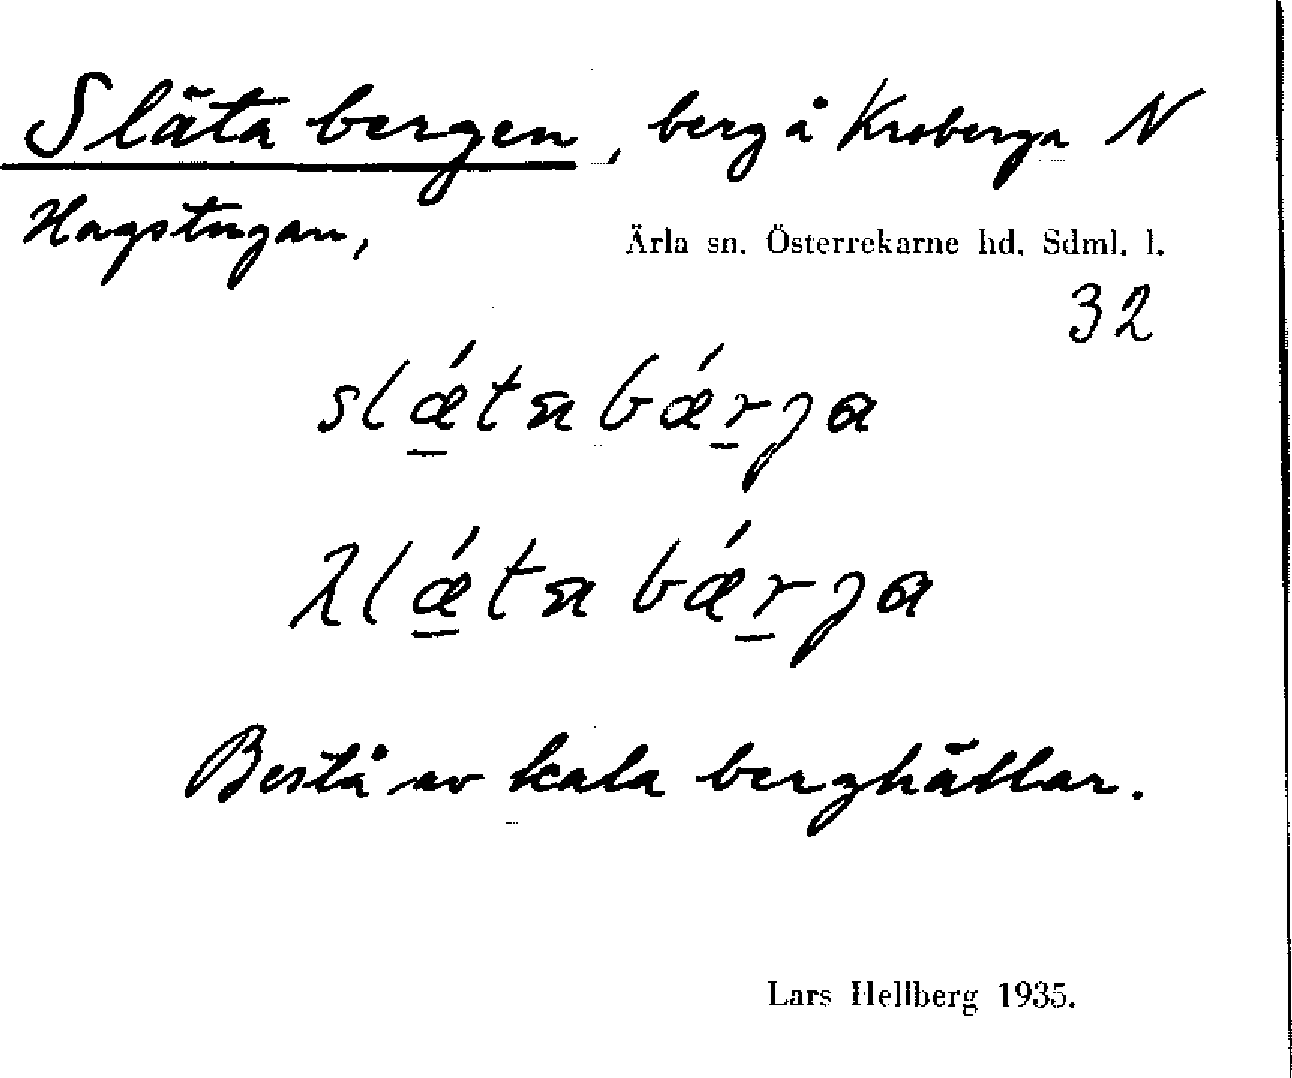 Släta bergen, berg å Kroberga N
Hagstugan,
Ärla sn. Österrekarne hd. Sdml. l.
32
slǽta bǽrja
λlǽta bǽrja
Bestå av kala berghällar.
Lars Hellberg 1935.